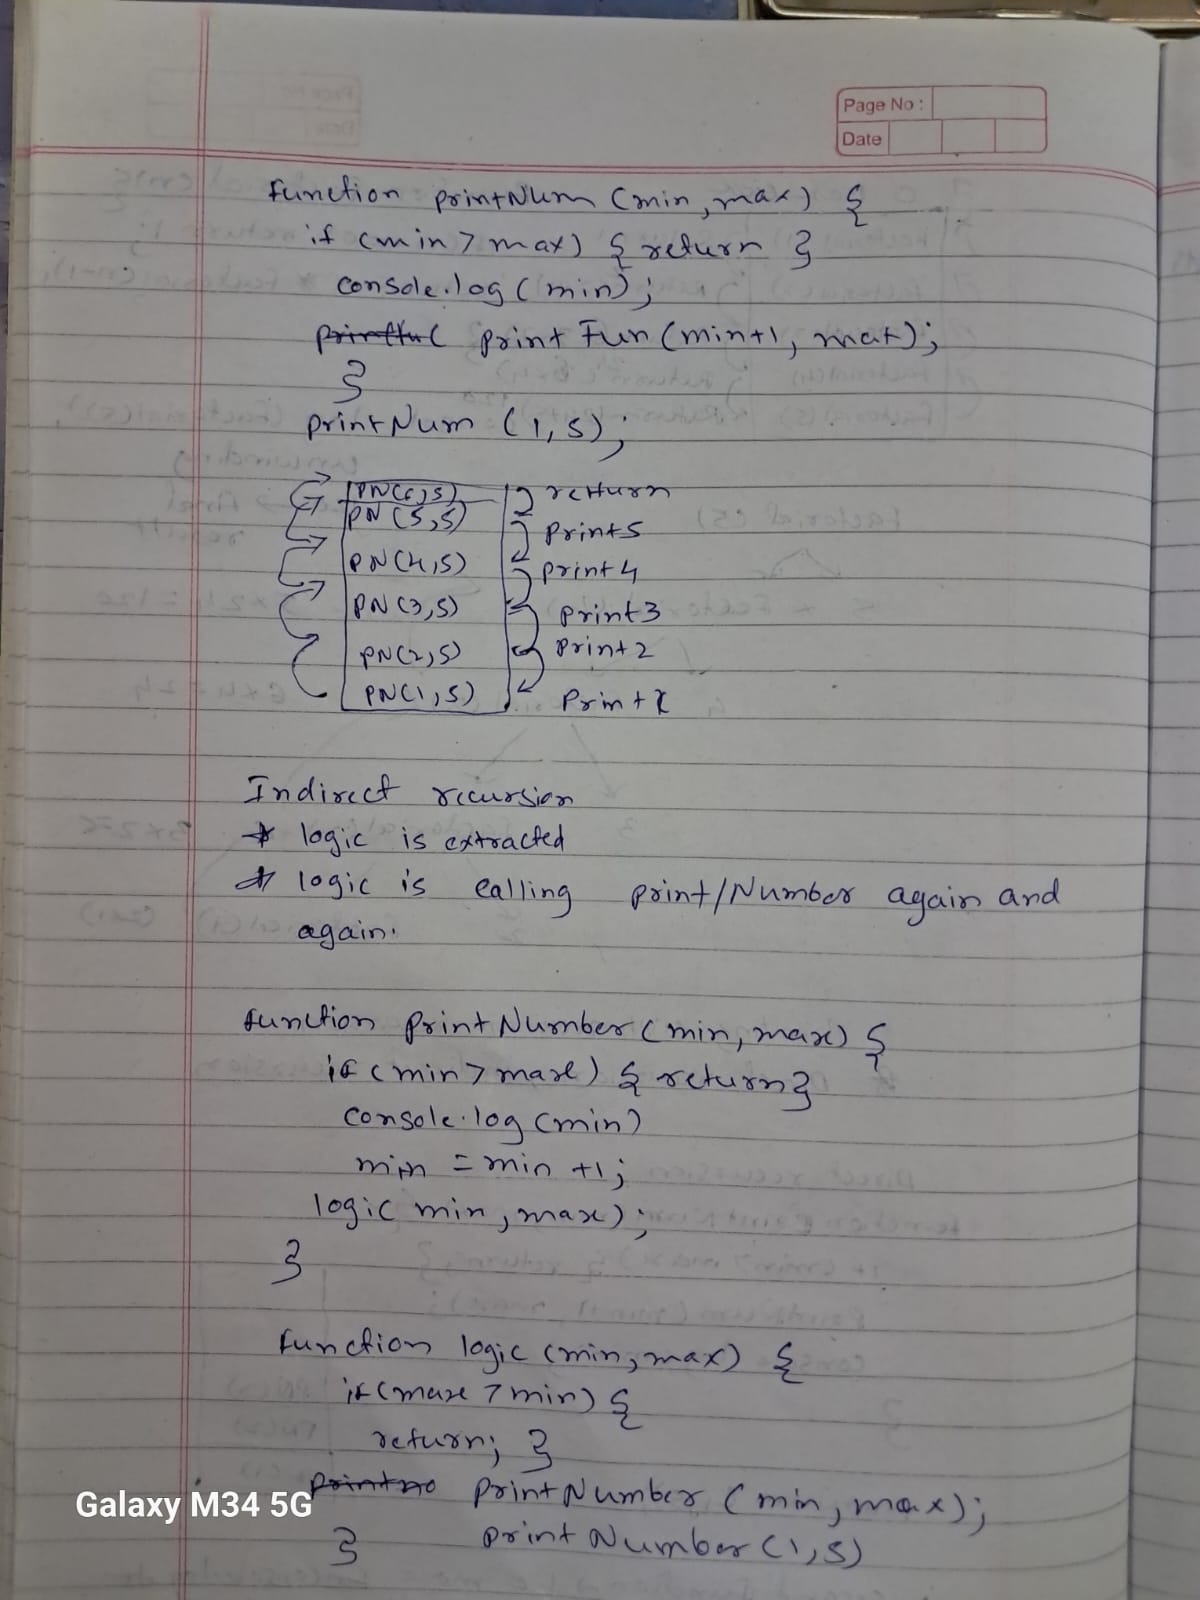 Page No :
Date
function printNum (min, max) {
if (min > max) { return }
console.log (min);
print Fun (min+1, max);
}
printNum (1, 5);
PN(6,5) return
PN (5,5) print 5
PN(4,5) print 4
PN(3,5) print 3
PN(2,5) print 2
PN(1,5) Print 1
Indirect recursion
* logic is extracted
* logic is calling print/Number again and
again.
function printNumber (min, max) {
if (min > max) { return }
console.log (min)
min = min +1;
logic min, max);
}
function logic (min, max) {
if (max > min) {
return; }
printno printNumber (min, max);
} printNumber (1,5)
Galaxy M34 5G